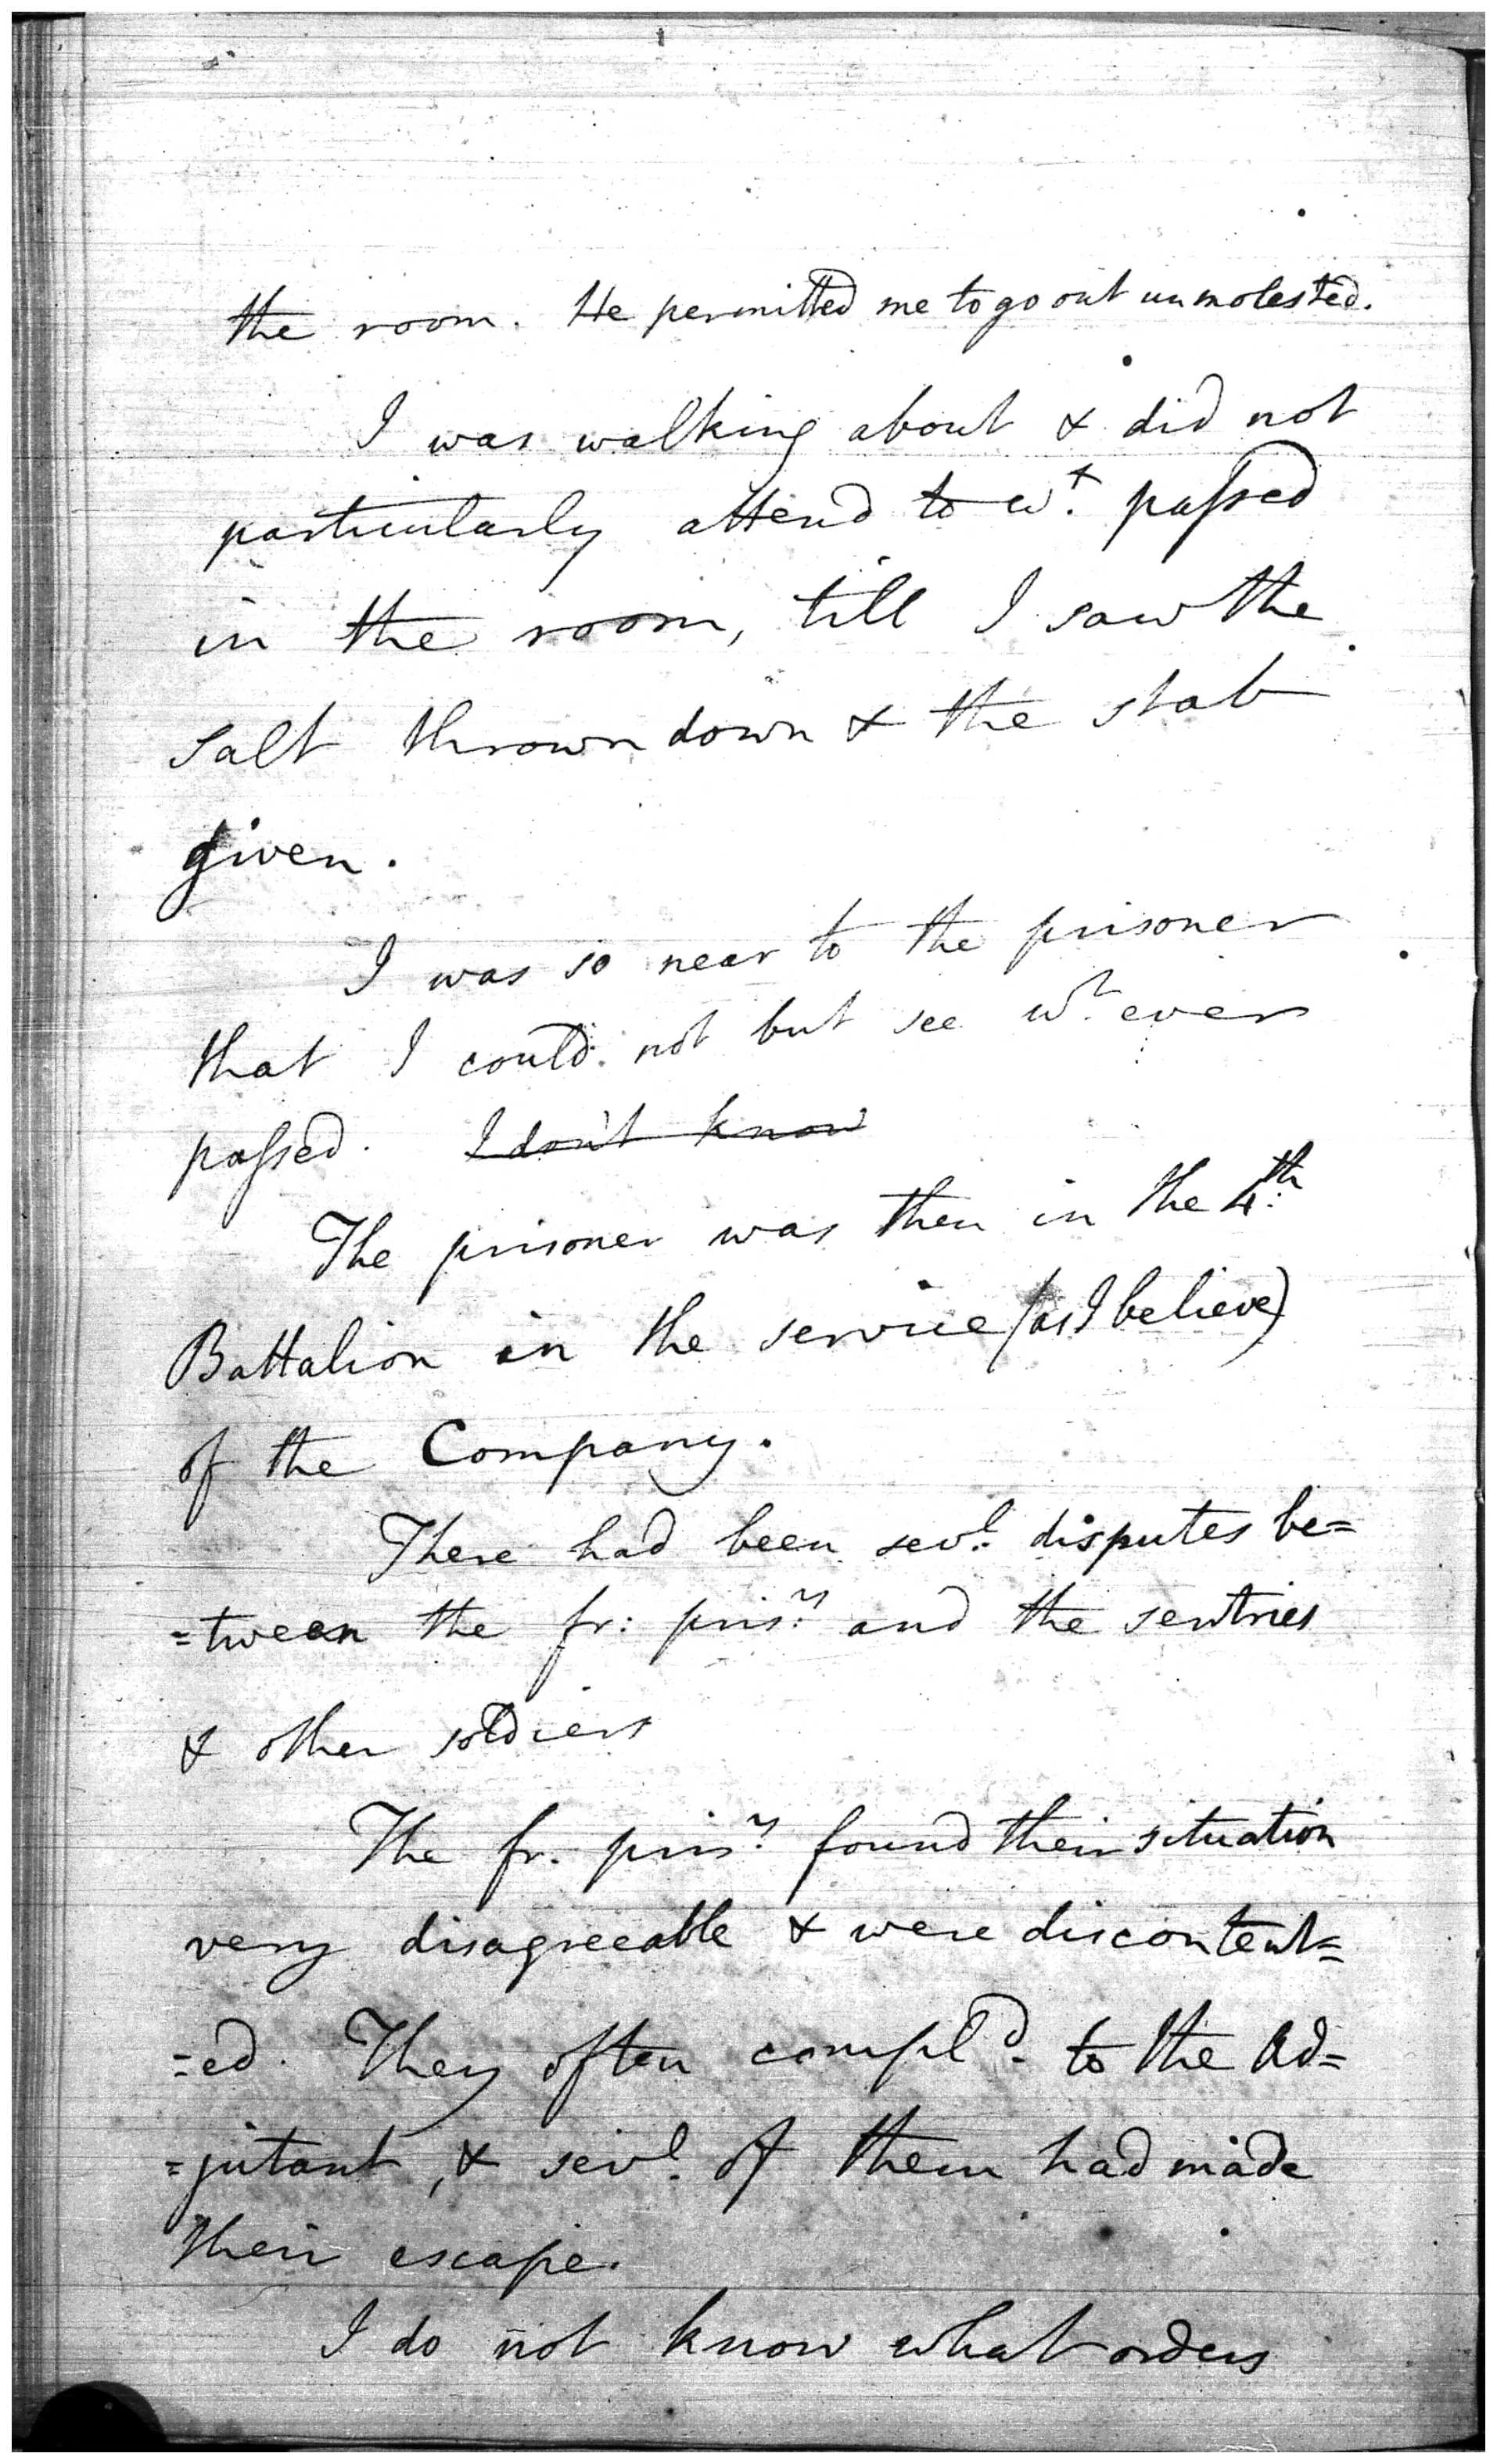 the room. He permitted me to go out unmolested.
I was walking about & did not
particularly attend to wt. passed
in the room, till I saw the
salt thrown down & the stab
given.
I was so near to the prisoner
that I could not but see wt. ever
passed. I don't know
The prisoner was then in the 4th.
Battalion in the service (as I believe)
of the Company.
There had been sevl. disputes be=
=tween the fr: prisrs. and the sentries
& other soldiers
The fr. prisrs. found their situation
very disagreeable & were discontent=
=ed. They often compld. to the Ad=
=jutant, & sevl. of them had made
their escape.
I do not know what orders